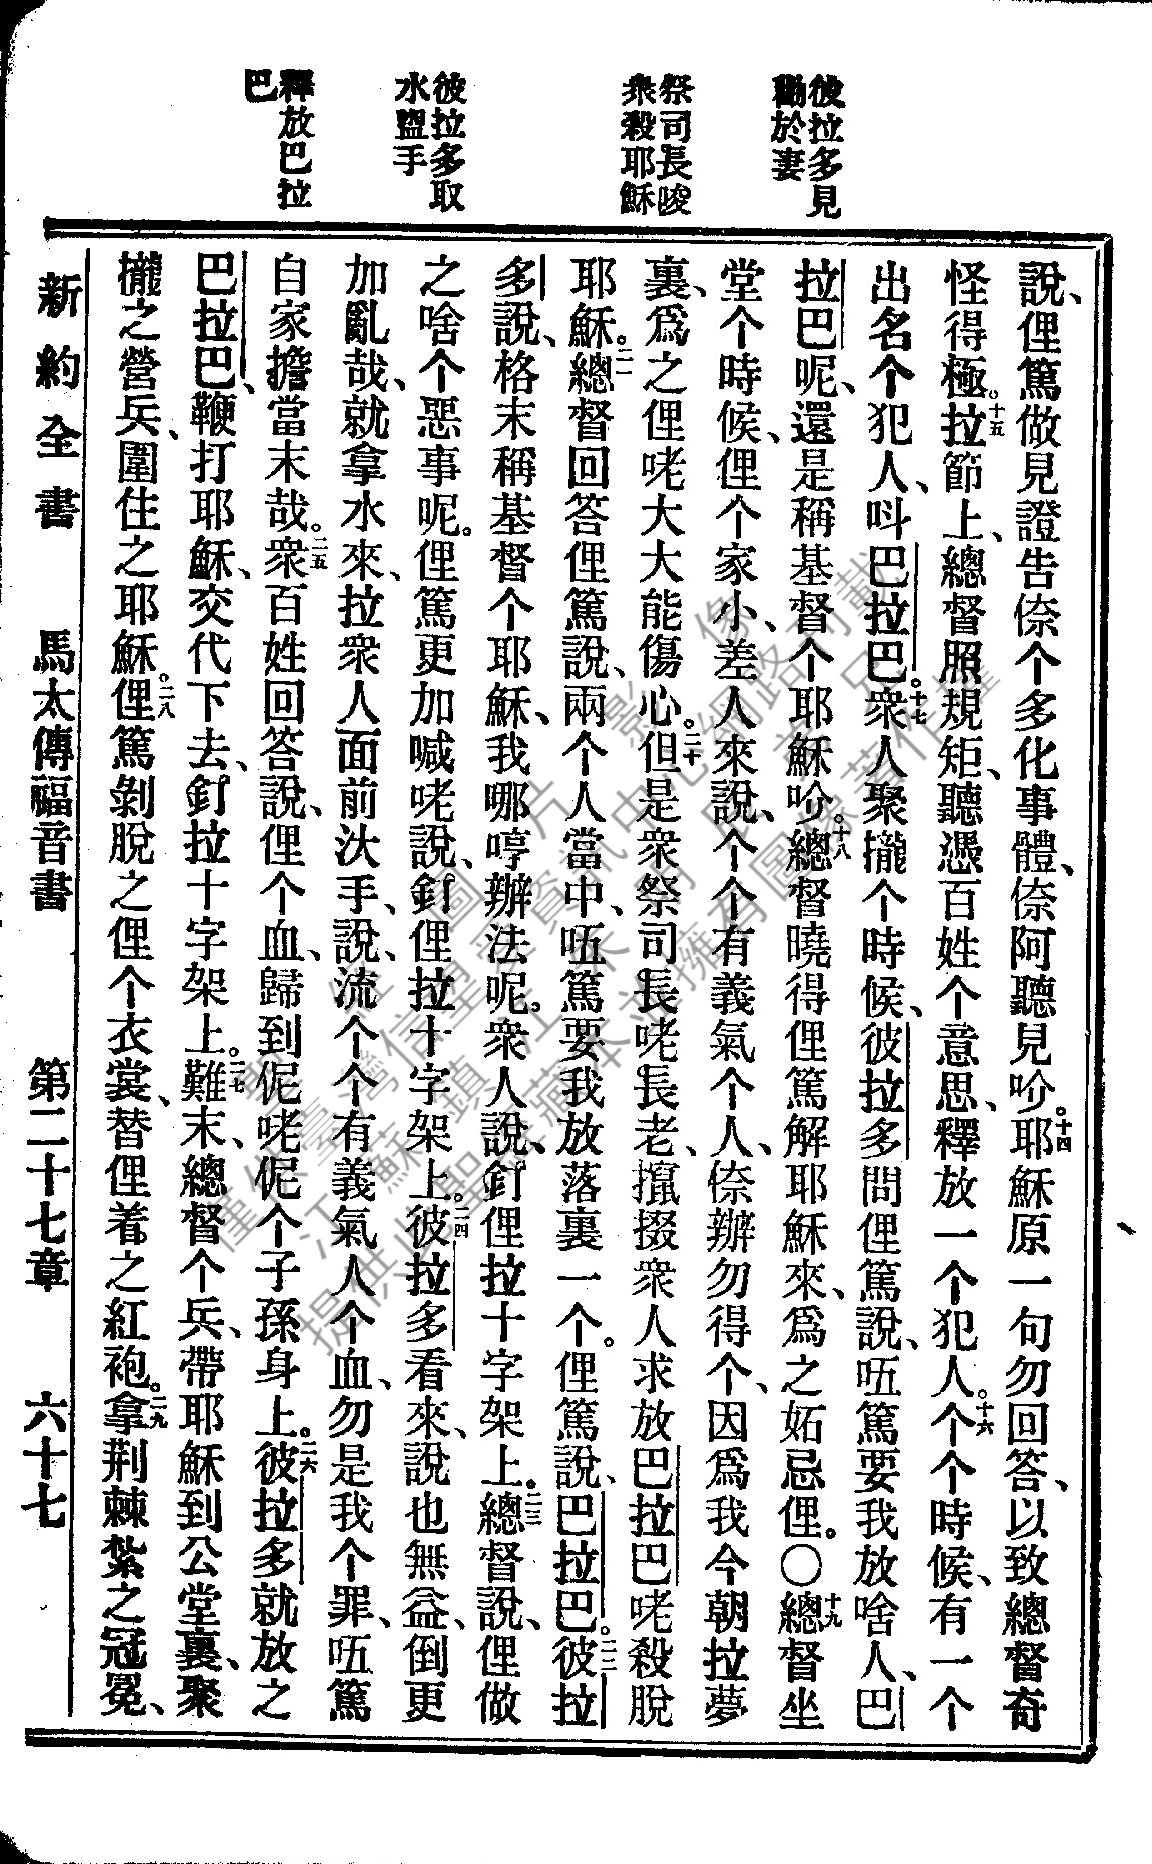 彼拉多見
勸於妻
祭司長唆
衆殺耶穌
彼拉多取
水盥手
釋放巴拉
巴
說、俚篤做見證告倷个多化事體、倷阿聽見吤。十四耶穌原一句勿回答、以致總督奇
怪得極。十五拉節上、總督照規矩、聽憑百姓个意思、釋放一个犯人。十六个个時候、有一个
出名个犯人、呌巴拉巴。十七衆人聚攏个時候、彼拉多問俚篤說、㕶篤要我放啥人、巴
拉巴呢、還是稱基督个耶穌吤。十八總督曉得俚篤解耶穌來、爲之妬忌俚。〇十九總督坐
堂个時候、俚个家小、差人來說、个个有義氣个人、倷辦勿得个、因爲我今朝拉夢
裏、爲之俚咾大大能傷心。二十但是衆祭司長咾長老、攛掇衆人求放巴拉巴咾殺脫
耶穌。二一總督回答俚篤說、兩个人當中、㕶篤要我放落裏一个。俚篤說、巴拉巴。二二彼拉
多說、格末稱基督个耶穌、我哪哼辦法呢。衆人說、釘俚拉十字架上。二三總督說、俚做
之啥个惡事呢。俚篤更加喊咾說、釘俚拉十字架上。二四彼拉多看來、說也無益、倒更
加亂哉、就拿水來、拉衆人面前汏手、說、流个个有義氣人个血、勿是我个罪、㕶篤
自家擔當末哉。二五衆百姓回答說、俚个血、歸到伲咾伲个子孫身上。二六彼拉多就放之
巴拉巴、鞭打耶穌、交代下去、釘拉十字架上。二七難末、總督个兵、帶耶穌到公堂裏、聚
攏之營兵、圍住之耶穌。二八俚篤剝脫之俚个衣裳、替俚着之紅袍。二九拿荆棘紮之冠冕、
新約全書　馬太傳福音書　第二十七章　六十七